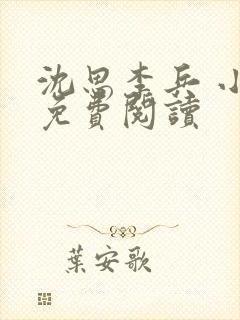 沈思李兵 小
免費閱讀
葉安歌